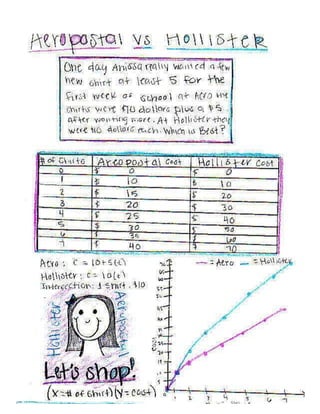 Aeropostal vs Hollister
One day Anissa really wanted a few
new shirt at least 5 for the
first week of school at Aero the
shirts were $10 dollars plus a $5
after wanting more. At Hollister they
were 10 dollars each. Which is Best?
# of Shirts Areopostal Cost Hollister Cost
0 $ 0 $ 0
1 $ 10 $ 10
2 $ 15 $ 20
3 $ 20 $ 30
4 $ 25 $ 40
5 $ 30 $ 50
6 $ 35 $ 60
7 $ 40 $ 70
Aero: C = 10+5(t)
Hollister: C = 10(t)
Intersection: 1 shirt, $10
= Aero = Hollister
Hollister
Aeropostal
Let's shop!
(x = # of shirt) (y = cost)
1 2 3 4 5 6 7